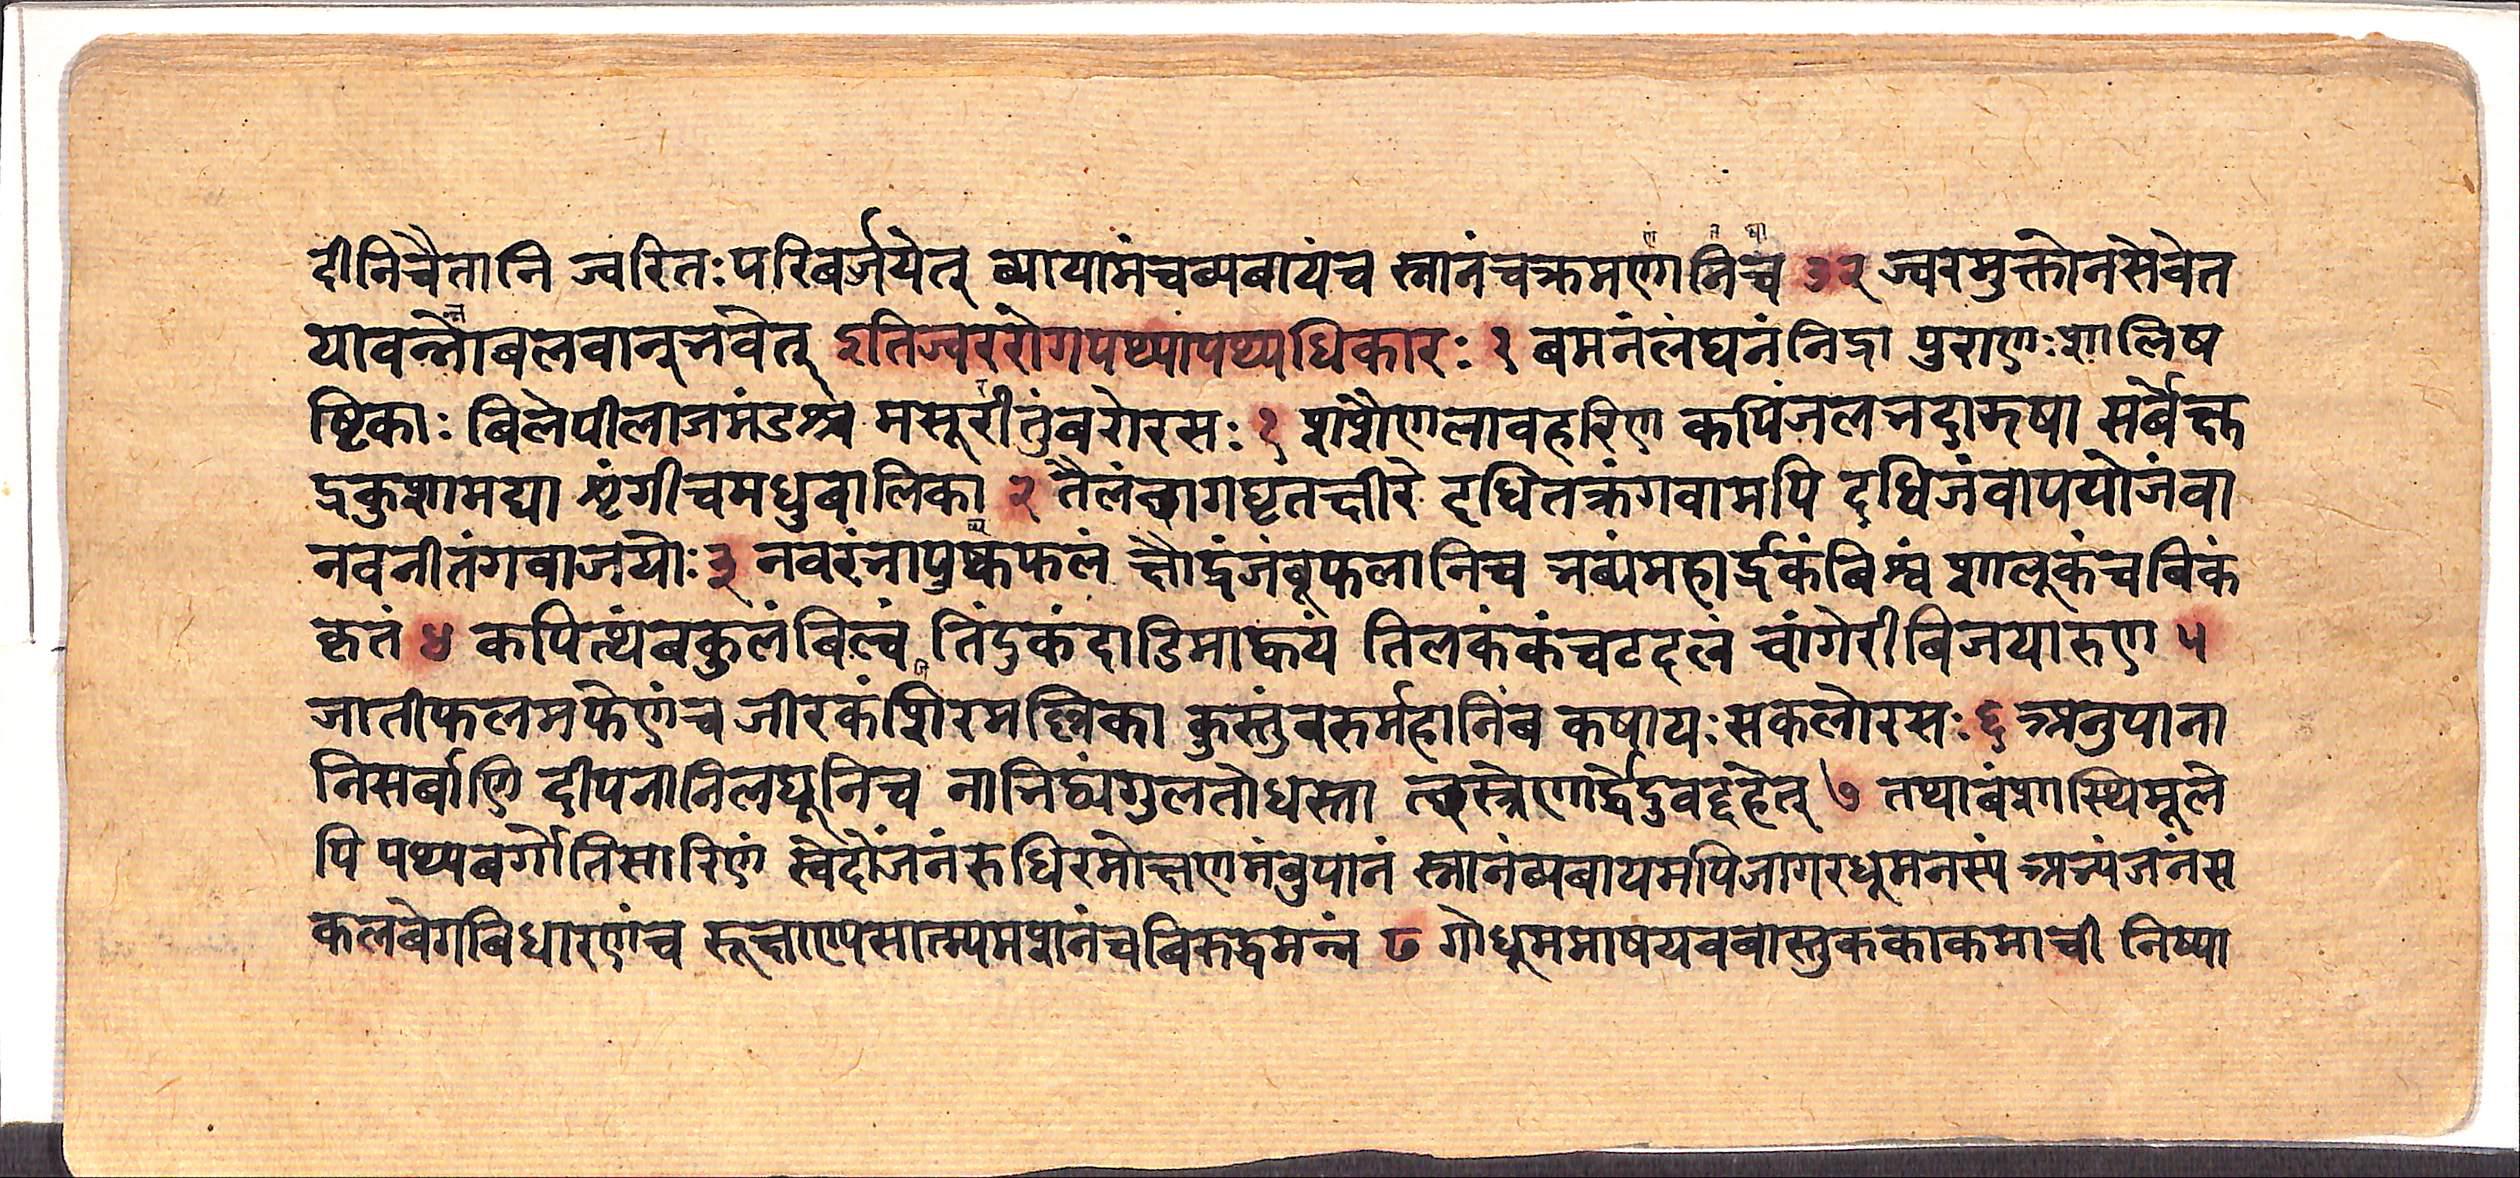 दीनिचैतानि ज्वरितःपरिबर्जयेत् ब्यायामंचब्यबायंच स्नानंचक्रमणानिच ३२ ज्वरमुक्तोनसेवेत
यावन्तोबलवान्नवेत् इतिज्वररोगपथ्यापथ्यधिकारः १ बमनंलंघनंनिद्रा पुराणःशालिष
ष्टिकाः बिलेपीलाजमंडश्च मसूरीतुंबरोरसः १ शशैणलावहरिण कपिंजलनदारुषा सर्बैक्त
द्रकुशामद्या शृंगीचमधुबालिका २ तैलंछागघृतक्षीरे दधितक्रंगवामपि दधिजंवापयोजंवा
नवनीतंगवाजयोः ३ नवरंनापुष्कफलं क्षौद्रंजंबूफलानिच नब्यंमहार्द्रकंबिश्वं शालूकंचबिकं
कृतं ४ कपित्थंबकुलंबिल्वं तिंदुकंदाडिमाह्वयं तिलकंकंचटदलं चांगेरीबिजयारुण ५
जातीफलमफेणंच जीरकंशिरमल्लिका कुस्तुंबरुर्महानिंब कषायःसकलोरसः ६ अनुपाना
निसर्बाणि दीपनानिलघूनिच नानिद्व्यंगुलतोधस्ता त्छस्त्रेणार्द्धेदुवद्दहेत् ७ तथाबंशास्थिमूले
पि पथ्यबर्गोतिसारिणं स्वेदोंजनंरुधिरमोक्षणमंबुपानं स्नानंब्यबायमपिजागरधूमनस्यं अन्यंजनंस
कलबेगबिधारणंच रूक्षाण्यसात्म्यमशनंचबिरुद्धमन्नं ८ गोधूममाषयवबास्तुककाकमाची निष्पा